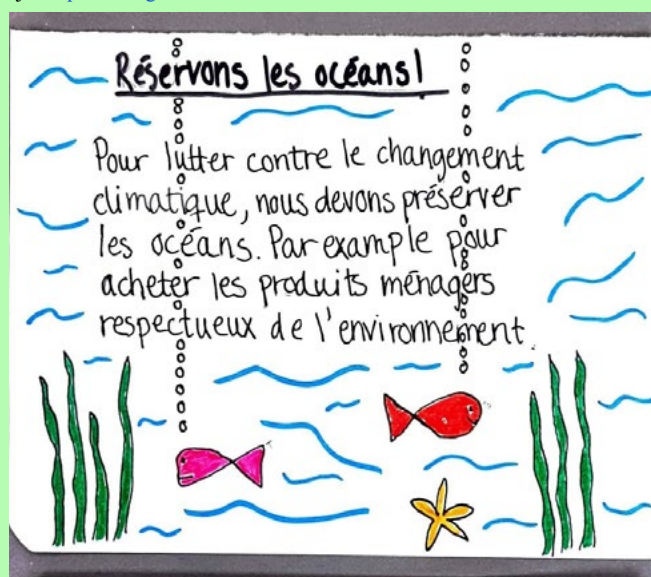 Réservons les océans!
Pour lutter contre le changement
climatique, nous devons préserver
les océans. Par example pour
acheter les produits ménagers
respectueux de l'environnement.